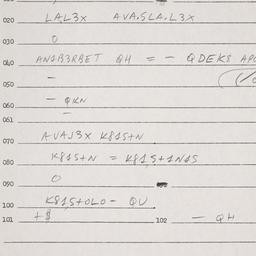 020 LAL3X AVA.SLA.L3X
030 O
040 AN1B3RBET QH = - QDEKS
050 -
060 - QKN
061 -
070 AVAJ3X K815+N
080 K815+N = K815+1N15
090 O
100 K815+OLO- QU
101 +8 102 - QH